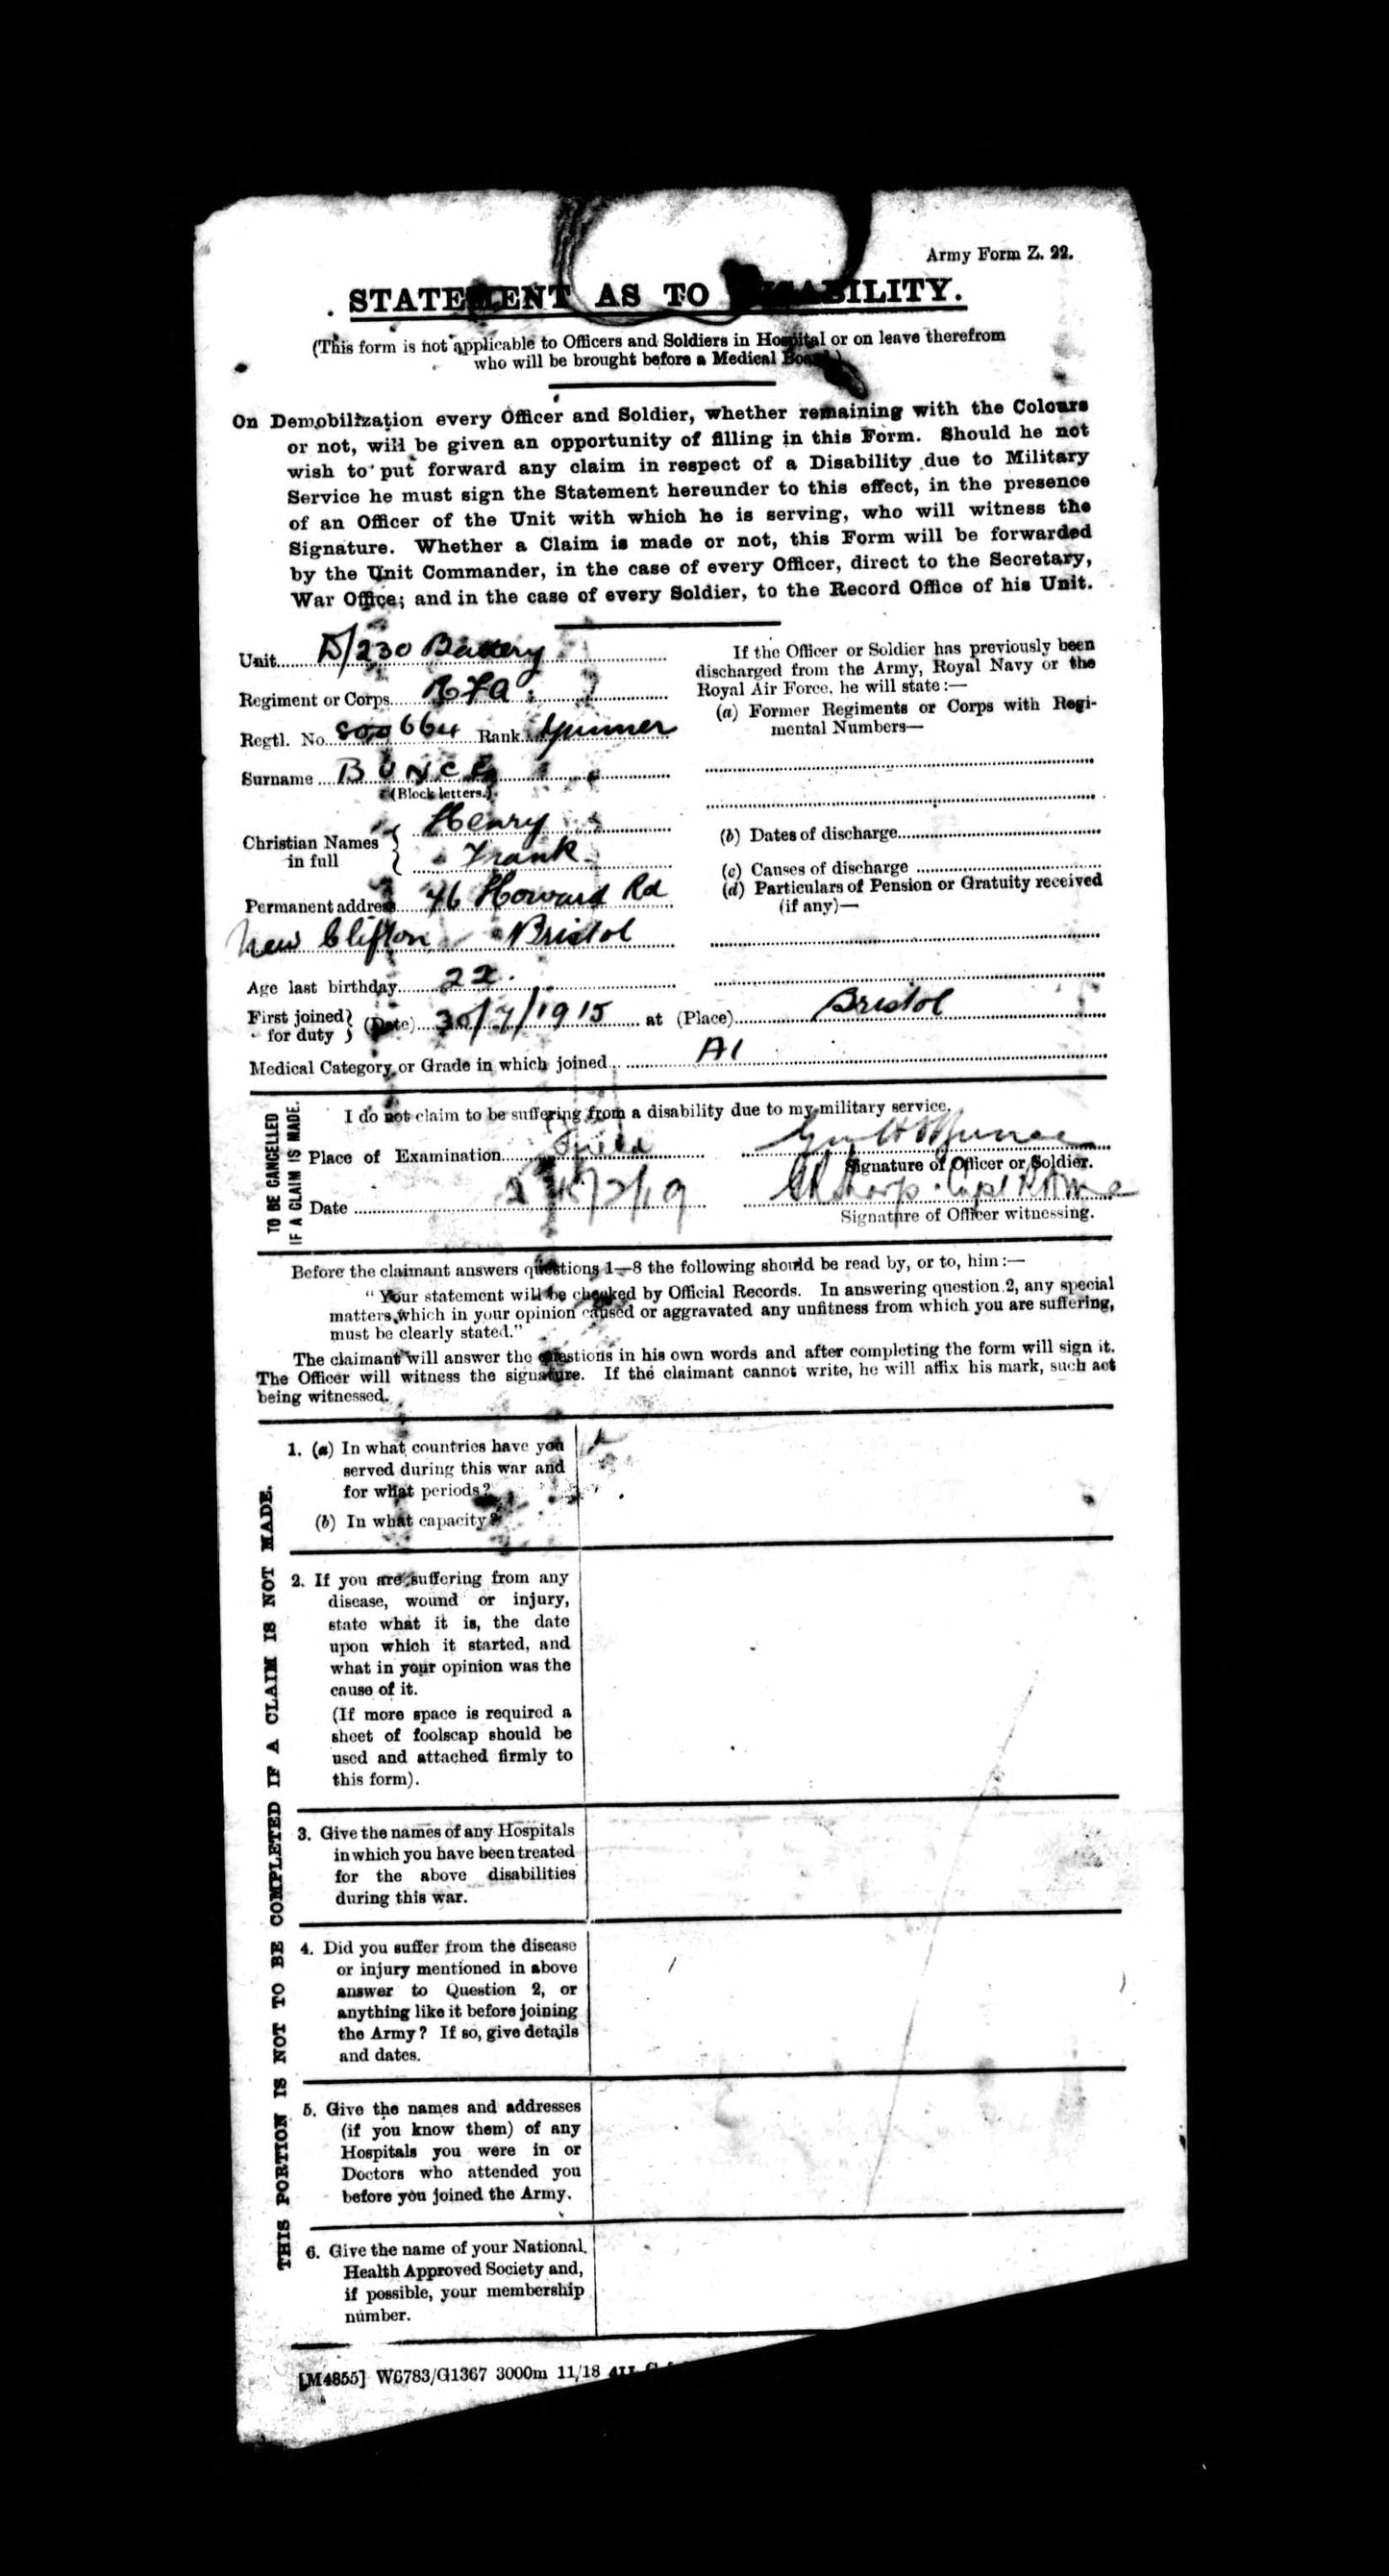 Army Form Z. 22.
STATEMENT AS TO DISABILITY.
(This form is not applicable to Officers and Soldiers in Hospital or on leave therefrom
who will be brought before a Medical Board.)
On Demobilization every Officer and Soldier, whether remaining with the Colours
or not, will be given an opportunity of filling in this Form. Should he not
wish to put forward any claim in respect of a Disability due to Military
Service he must sign the Statement hereunder to this effect, in the presence
of an Officer of the Unit with which he is serving, who will witness the
Signature. Whether a Claim is made or not, this Form will be forwarded
by the Unit Commander, in the case of every Officer, direct to the Secretary,
War Office; and in the case of every Soldier, to the Record Office of his Unit.
Unit D/230 Battery
Regiment or Corps RFA
Regtl. No. 800664 Rank Gunner
Surname BUNCE
(Block letters.)
Christian Names in full Henry
Frank
Permanent address 46 Howard Rd
New Clifton Bristol
Age last birthday 22.
If the Officer or Soldier has previously been
discharged from the Army, Royal Navy or the
Royal Air Force, he will state:—
(a) Former Regiments or Corps with Regi-
mental Numbers—
(b) Dates of discharge
(c) Causes of discharge
(d) Particulars of Pension or Gratuity received
(if any)—
First joined for duty (Date) 30/7/1915 at (Place) Bristol
Medical Category or Grade in which joined A1
TO BE CANCELLED
IF A CLAIM IS MADE.
I do not claim to be suffering from a disability due to my military service.
Place of Examination Field
Signature of Officer or Soldier.
Date /2/19
Signature of Officer witnessing.
Before the claimant answers questions 1—8 the following should be read by, or to, him:—
"Your statement will be checked by Official Records. In answering question 2, any special
matters which in your opinion caused or aggravated any unfitness from which you are suffering,
must be clearly stated."
The claimant will answer the questions in his own words and after completing the form will sign it.
The Officer will witness the signature. If the claimant cannot write, he will affix his mark, such act
being witnessed.
THIS PORTION IS NOT TO BE COMPLETED IF A CLAIM IS NOT MADE.
1. (a) In what countries have you
served during this war and
for what periods?
(b) In what capacity?
2. If you are suffering from any
disease, wound or injury,
state what it is, the date
upon which it started, and
what in your opinion was the
cause of it.
(If more space is required a
sheet of foolscap should be
used and attached firmly to
this form).
3. Give the names of any Hospitals
in which you have been treated
for the above disabilities
during this war.
4. Did you suffer from the disease
or injury mentioned in above
answer to Question 2, or
anything like it before joining
the Army? If so, give details
and dates.
5. Give the names and addresses
(if you know them) of any
Hospitals you were in or
Doctors who attended you
before you joined the Army.
6. Give the name of your National
Health Approved Society and,
if possible, your membership
number.
[M4855] W6783/G1367 3000m 11/18